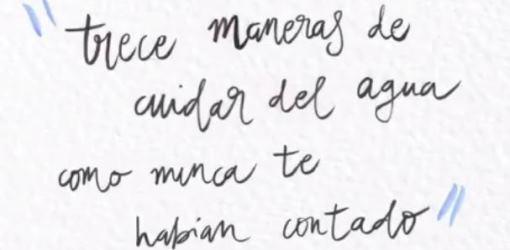 "trece maneras de
cuidar del agua
como nunca te
habían contado"